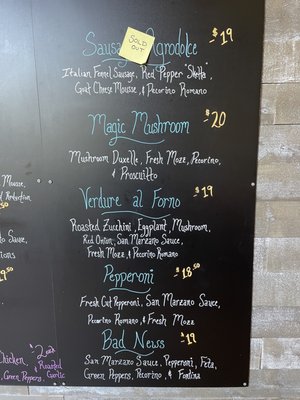 Sausage Agrodolce $19
SOLD OUT
Italian Fennel Sausage, Red Pepper "Shetta",
Goat Cheese Mousse, & Pecorino Romano
Magic Mushroom $20
Mushroom Duxelle, Fresh Mozz, Pecorino,
& Prosciutto
Verdure al Forno $19
Roasted Zucchini, Eggplant, Mushroom,
Red Onion, San Marzano Sauce,
Fresh Mozz, & Pecorino Romano
Pepperoni $18.50
Fresh Cut Pepperoni, San Marzano Sauce,
Pecorino Romano & Fresh Mozz
Bad News $19
San Marzano Sauce, Pepperoni, Feta,
Green Peppers, Pecorino, & Fontina
Mousse,
Reduction
Sauce,
.50
Chicken
& Roasted
Garlic
Green Peppers